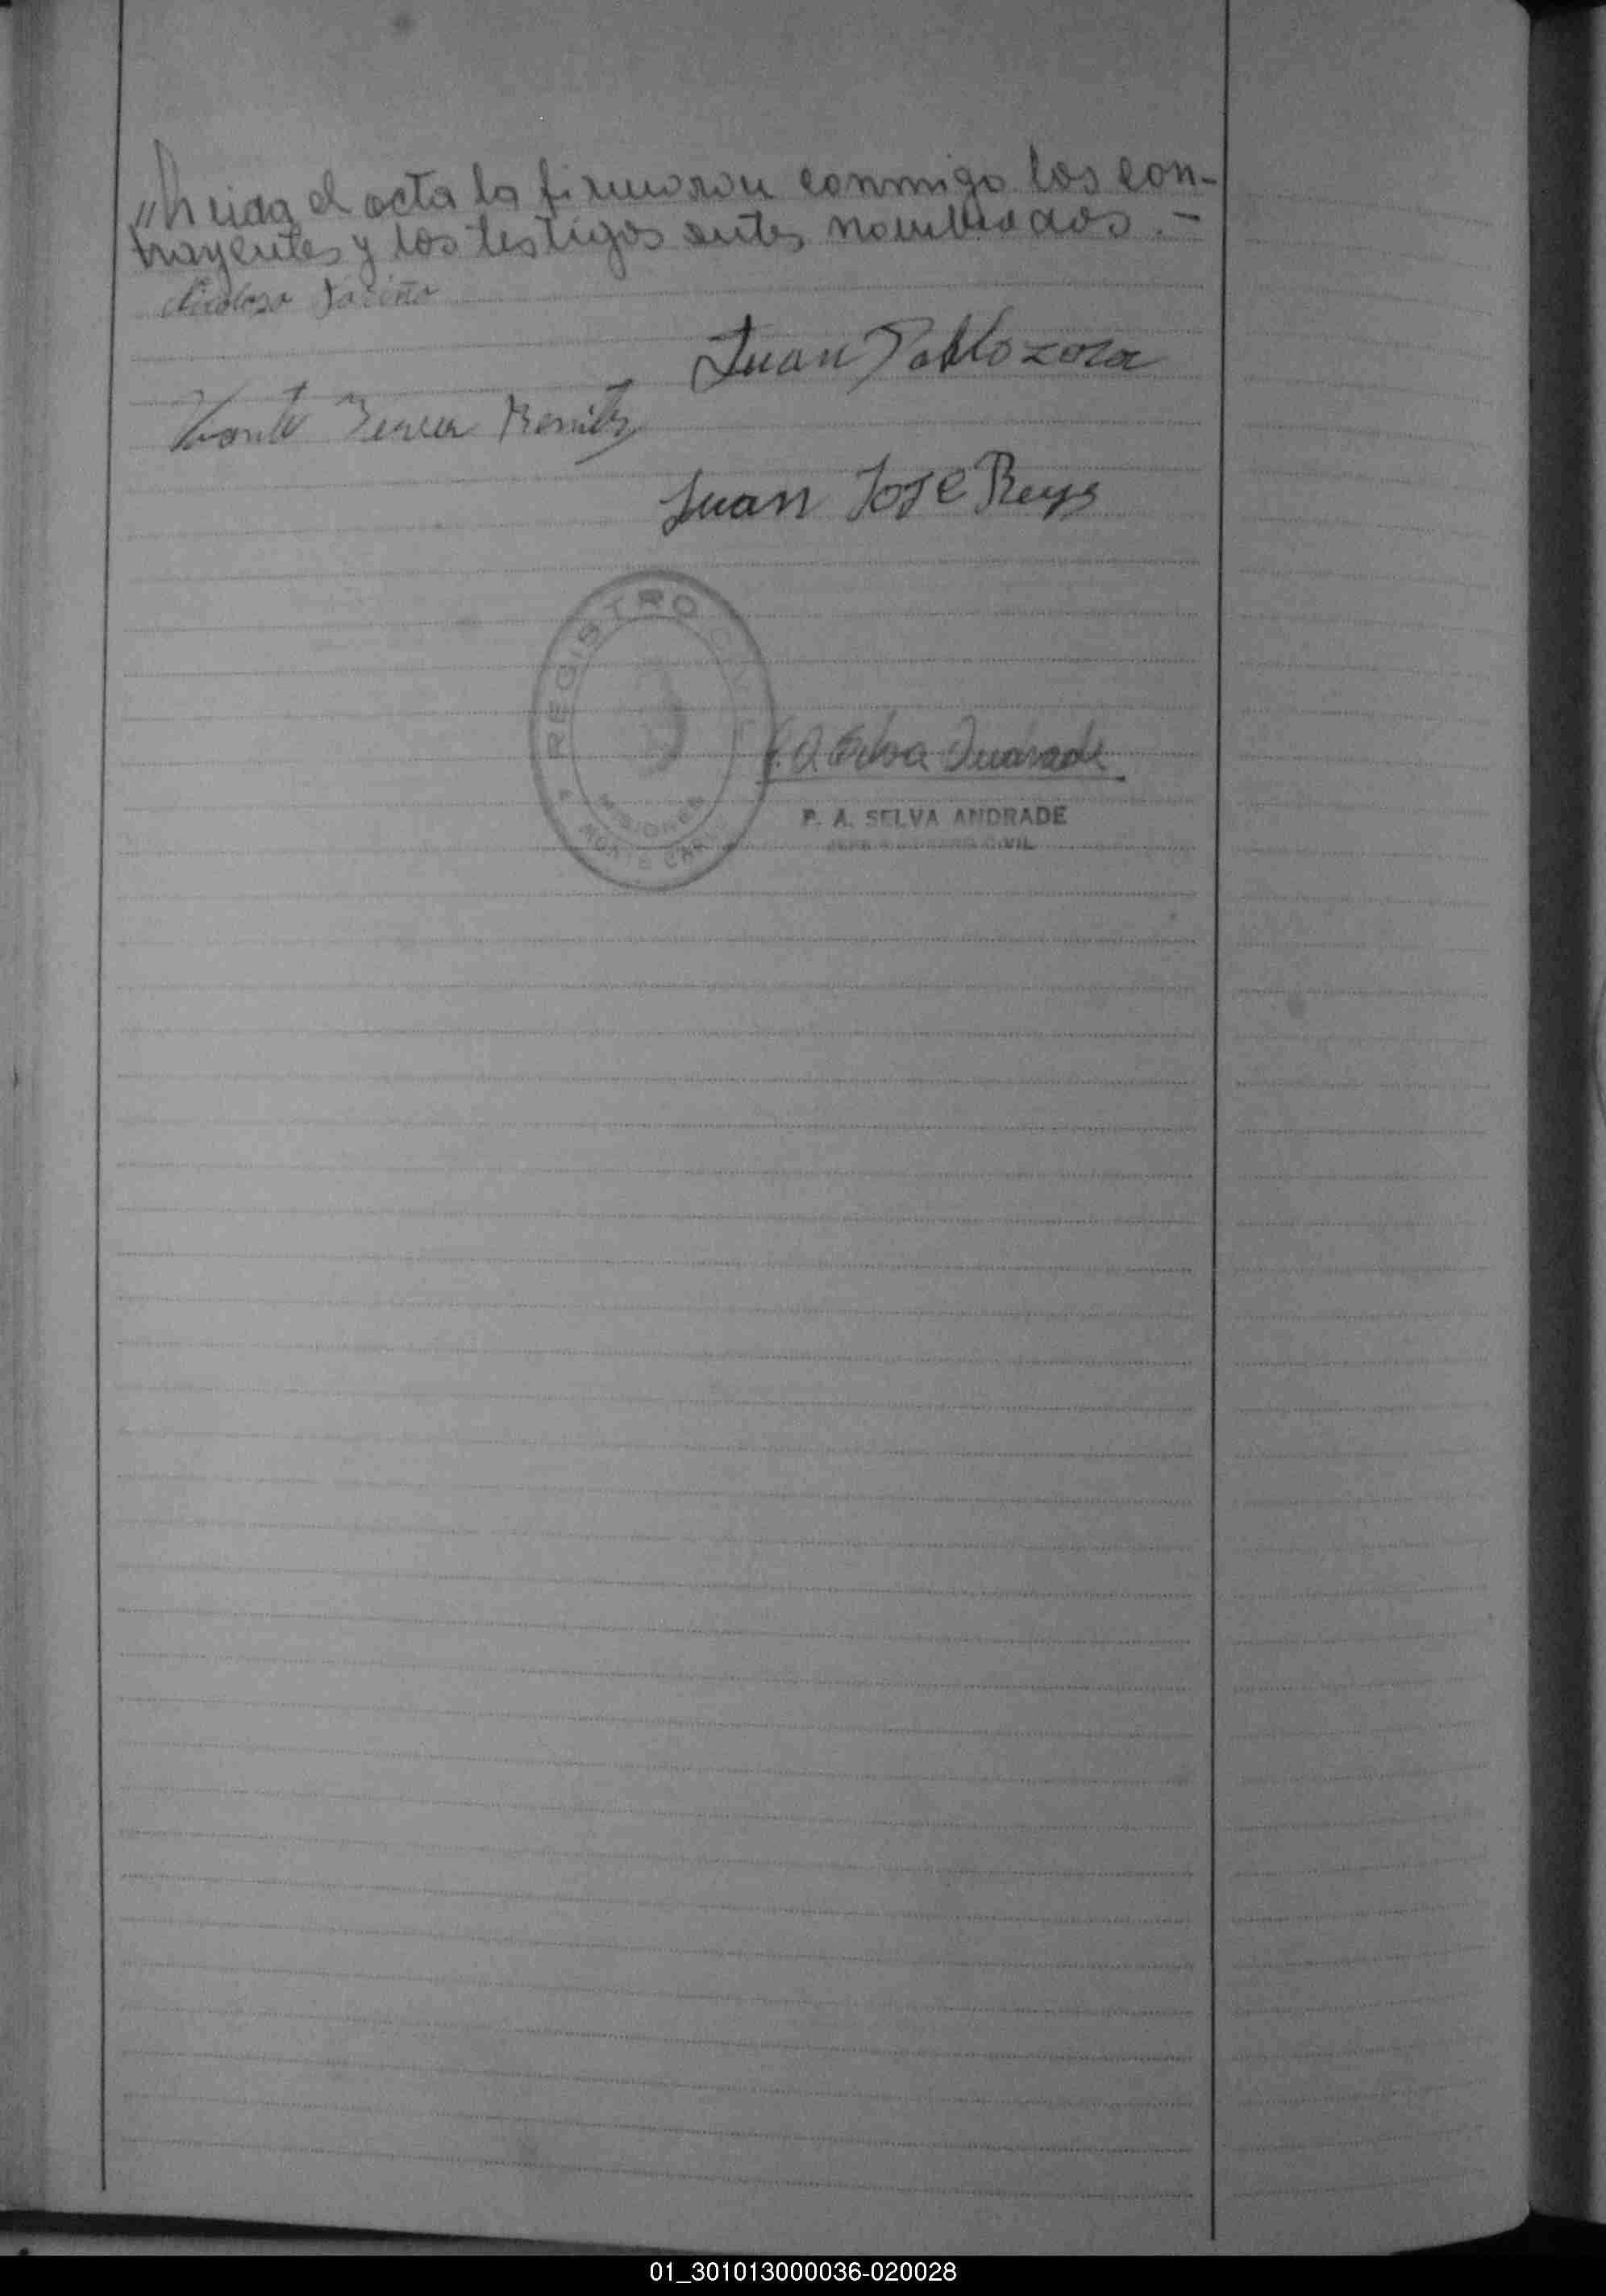 "Leida el acta la firmaron conmigo los con-
trayentes y los testigos antes nombrados.-
Fariña
Juan Pablo Zora
Benitez
Juan Jose Reys
REGISTRO CIVIL
MISIONES
MONTE CARLO
P. A. Selva Andrade
P. A. SELVA ANDRADE
JEFE REGISTRO CIVIL
01_301013000036-020028